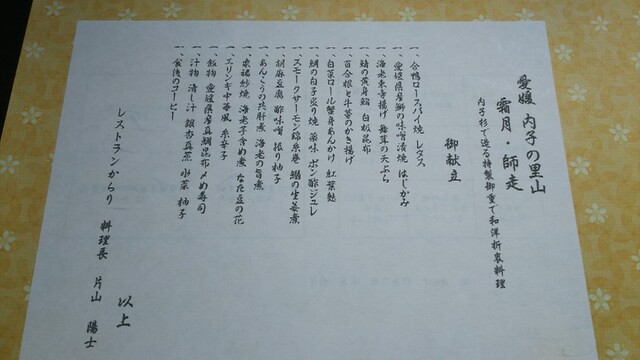 愛媛 内子の里山
霜月・師走
内子杉で造る特製御重で和洋折衷料理
御献立
一、合鴨ロースパイ焼 レタス
一、愛媛県産鰤の味噌漬焼 はじかみ
一、海老東寺揚げ 舞茸の天ぷら
一、鯖の黄身鮨 白板昆布
一、百合根と牛蒡のかき揚げ
一、白菜ロール蟹身あんかけ 紅葉麩
一、鯛の白子炙り焼 薬味 ポン酢ジュレ
一、スモークサーモン錦糸巻 鰯の生姜煮
一、胡麻豆腐 酢味噌 振り柚子
一、あんこうの共肝煮 海老の旨煮
一、東裾紗焼 海老芋含め煮 なた豆の花
一、エリンギ中華風 糸辛子
一、飯物 愛媛県産真鯛昆布〆め寿司
一、汁物 清し汁 銀杏真蒸 水菜 柚子
一、食後のコーヒー
以上
レストランからり 料理長 片山 陽士